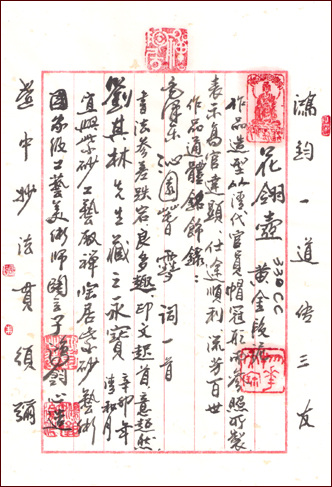 鴻鈞一道傳三友
花翎壺 黃金段泥 330CC
作品造型以清代官員帽冠形而參照所製
表示高官達顯、仕途順利、流芳百世
作品通體銘飾錄:
毛澤東 沁園春 雪 詞一首
書法參差跌宕良多趣、印文起首意超然
劉其林先生藏之永寶 辛卯年
清秋月
宜興紫砂工藝廠禪 居 紫砂藝術
國家級工藝美術師陶 子道鈞心造
壺中妙法貫須彌